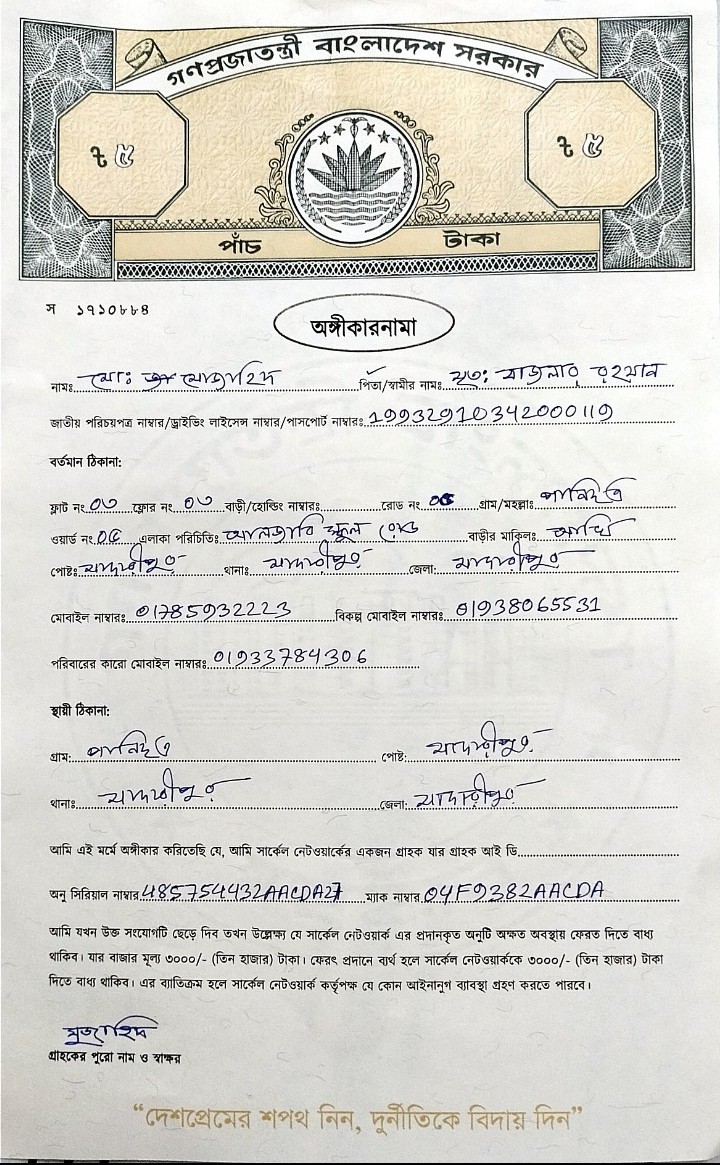 গণপ্রজাতন্ত্রী বাংলাদেশ সরকার
৳ ৫ ৳ ৫
পাঁচ টাকা
স ১৭১০৮৮৪
অঙ্গীকারনামা
নামঃ মোঃ মোজাহিদ পিতা/স্বামীর নামঃ মৃত: রহমান
জাতীয় পরিচয়পত্র নাম্বার/ড্রাইভিং লাইসেন্স নাম্বার/পাসপোর্ট নাম্বারঃ 19932910342000119
বর্তমান ঠিকানা:
ফ্লাট নং ০৩ ফ্লোর নং ০৩ বাড়ী/হোল্ডিং নাম্বারঃ রোড নং ০৫ গ্রাম/মহল্লাঃ
ওয়ার্ড নং ০৫ এলাকা পরিচিতিঃ স্কুল রোড বাড়ীর মালিকঃ
পোষ্টঃ মাদারীপুর থানাঃ মাদারীপুর জেলা: মাদারীপুর
মোবাইল নাম্বারঃ 01785932223 বিকল্প মোবাইল নাম্বারঃ 01938065531
পরিবারের কারো মোবাইল নাম্বারঃ 01933784306
স্থায়ী ঠিকানা:
গ্রাম: পোষ্ট: মাদারীপুর
থানাঃ মাদারীপুর জেলা: মাদারীপুর
আমি এই মর্মে অঙ্গীকার করিতেছি যে, আমি সার্কেল নেটওয়ার্কের একজন গ্রাহক যার গ্রাহক আই ডি
অনু সিরিয়াল নাম্বার 485754432AACDA27 ম্যাক নাম্বার 04F9382AACDA
আমি যখন উক্ত সংযোগটি ছেড়ে দিব তখন উল্লেক্ষ্য যে সার্কেল নেটওয়ার্ক এর প্রদানকৃত অনুটি অক্ষত অবস্থায় ফেরত দিতে বাধ্য
থাকিব। যার বাজার মূল্য ৩০০০/- (তিন হাজার) টাকা। ফেরৎ প্রদানে ব্যর্থ হলে সার্কেল নেটওয়ার্ককে ৩০০০/- (তিন হাজার) টাকা
দিতে বাধ্য থাকিব। এর ব্যতিক্রম হলে সার্কেল নেটওয়ার্ক কর্তৃপক্ষ যে কোন আইনানুগ ব্যাবস্থা গ্রহণ করতে পারবে।
মুজাহিদ
গ্রাহকের পুরো নাম ও স্বাক্ষর
“দেশপ্রেমের শপথ নিন, দুর্নীতিকে বিদায় দিন”